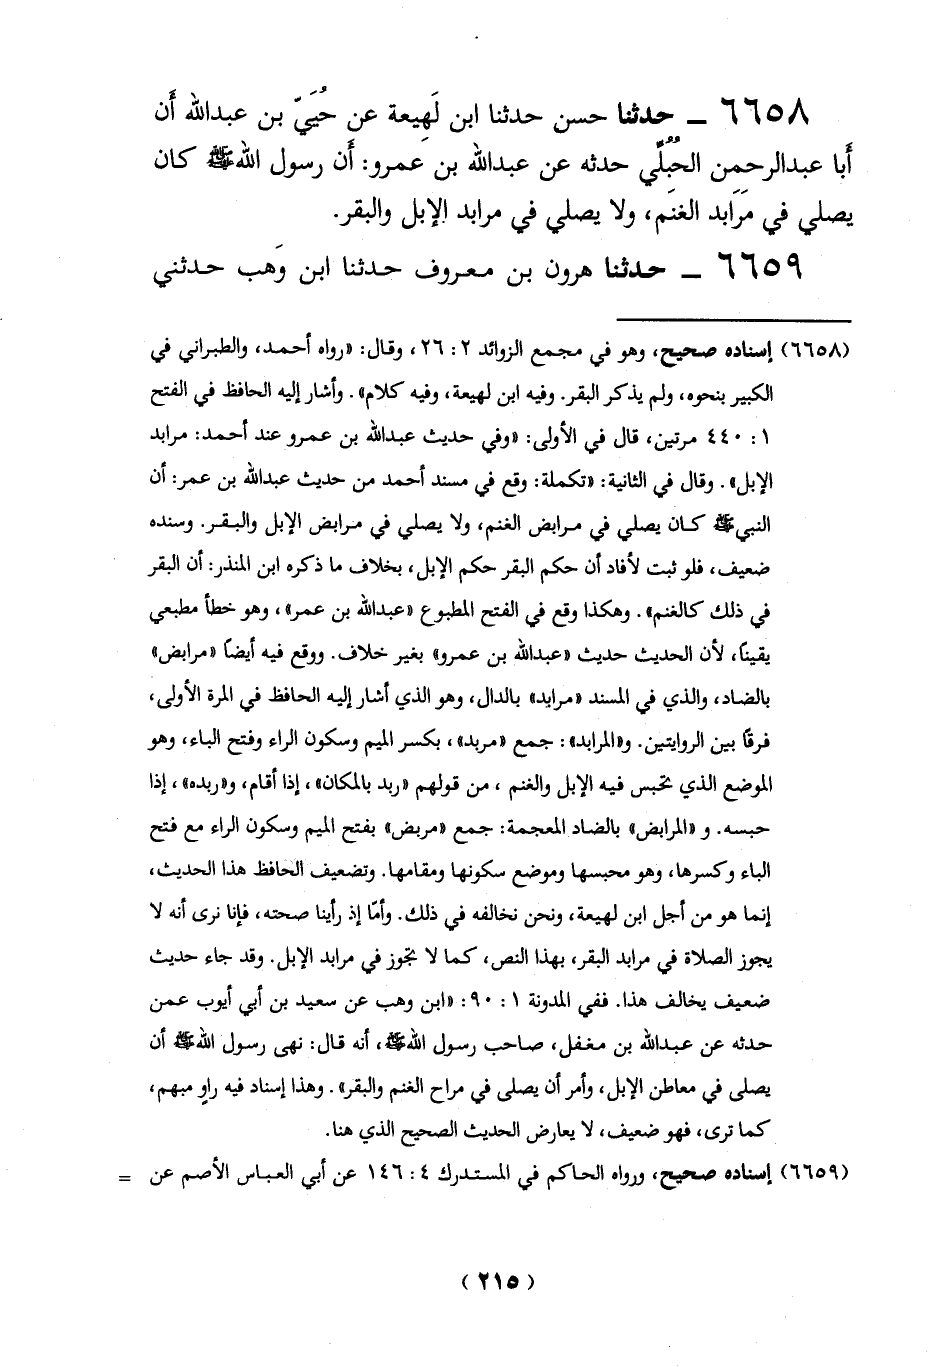 ٦٦٥٨ ــ حدثنا حسن حدثنا ابن لَهِيعة عن حُيَيّ بن عبدالله أَن
أَبا عبدالرحمن الحُبُلّي حدثه عن عبدالله بن عمرو: أَن رسول اللهﷺ كان
يصلي في مَرَابد الغنم، ولا يصلي في مرابد الإبل والبقر.
٦٦٥٩ ــ حدثنا هرون بن معروف حدثنا ابن وَهب حدثني
(٦٦٥٨) إسناده صحيح، وهو في مجمع الزوائد ٢ : ٢٦، وقال: «رواه أحمد، والطبراني في
الكبير بنحوه، ولم يذكر البقر. وفيه ابن لهيعة، وفيه كلام». وأشار إليه الحافظ في الفتح
١ : ٤٤٠ مرتين، قال في الأولى: «وفي حديث عبدالله بن عمرو عند أحمد: مرابد
الإبل». وقال في الثانية: «تكملة: وقع في مسند أحمد من حديث عبدالله بن عمر: أن
النبيﷺ كان يصلي في مرابض الغنم، ولا يصلي في مرابض الإبل والبقر. وسنده
ضعيف، فلو ثبت لأفاد أن حكم البقر حكم الإبل، بخلاف ما ذكره ابن المنذر: أن البقر
في ذلك كالغنم». وهكذا وقع في الفتح المطبوع «عبدالله بن عمر»، وهو خطأ مطبعي
يقينًا، لأن الحديث حديث «عبدالله بن عمرو» بغير خلاف. ووقع فيه أيضًا «مرابض»
بالضاد، والذي في المسند «مرابد» بالدال، وهو الذي أشار إليه الحافظ في المرة الأولى،
فرقًا بين الروايتين. و«المرابد»: جمع «مربد»، بكسر الميم وسكون الراء وفتح الباء، وهو
الموضع الذي تحبس فيه الإبل والغنم ، من قولهم «ربد بالمكان»، إذا أقام، و«ربده»، إذا
حبسه. و «المرابض» بالضاد المعجمة: جمع «مربض» بفتح الميم وسكون الراء مع فتح
الباء وكسرها، وهو محبسها وموضع سكونها ومقامها. وتضعيف الحافظ هذا الحديث،
إنما هو من أجل ابن لهيعة، ونحن نخالفه في ذلك. وأمّا إذ رأينا صحته، فإنا نرى أنه لا
يجوز الصلاة في مرابد البقر، بهذا النص، كما لا تجوز في مرابد الإبل. وقد جاء حديث
ضعيف يخالف هذا. ففي المدونة ١ : ٩٠: «ابن وهب عن سعيد بن أبي أيوب عمن
حدثه عن عبدالله بن مغفل، صاحب رسول اللهﷺ، أنه قال: نهى رسول اللهﷺ أن
يصلى في معاطن الإبل، وأمر أن يصلى في مراح الغنم والبقر». وهذا إسناد فيه راوٍ مبهم،
كما ترى، فهو ضعيف، لا يعارض الحديث الصحيح الذي هنا.
(٦٦٥٩) إسناده صحيح، ورواه الحاكم في المستدرك ٤ : ١٤٦ عن أبي العباس الأصم عن =
(٢١٥)